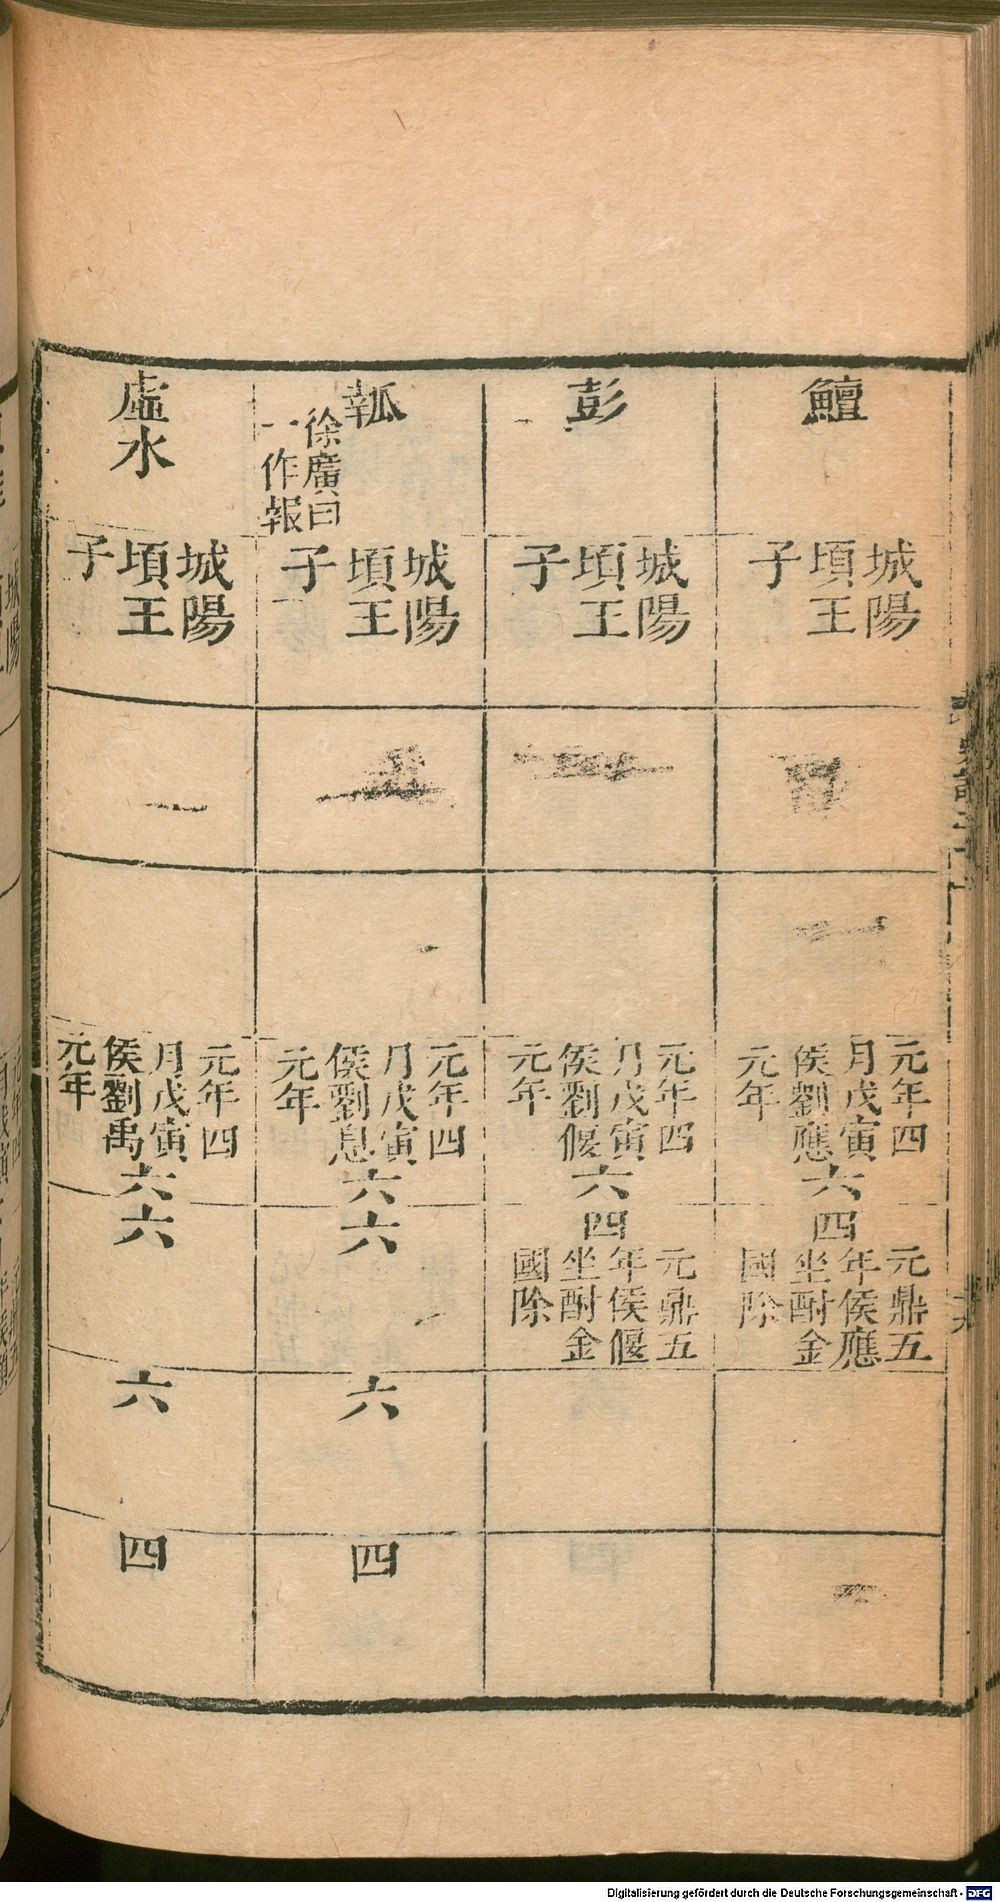 鱣
城陽
頃王
子
元年四
月戊寅
侯劉應
元年
六
四
元鼎五
年侯應
坐酎金
國除
彭
城陽
頃王
子
元年四
月戊寅
侯劉偃
元年
六
四
元鼎五
年侯偃
坐酎金
國除
瓡
徐廣曰
一作報
城陽
頃王
子
元年四
月戊寅
侯劉息
元年
六
六
六
四
虛水
城陽
頃王
子
元年四
月戊寅
侯劉禹
元年
六
六
六
四
Digitalisierung gefördert durch die Deutsche Forschungsgemeinschaft - DFG